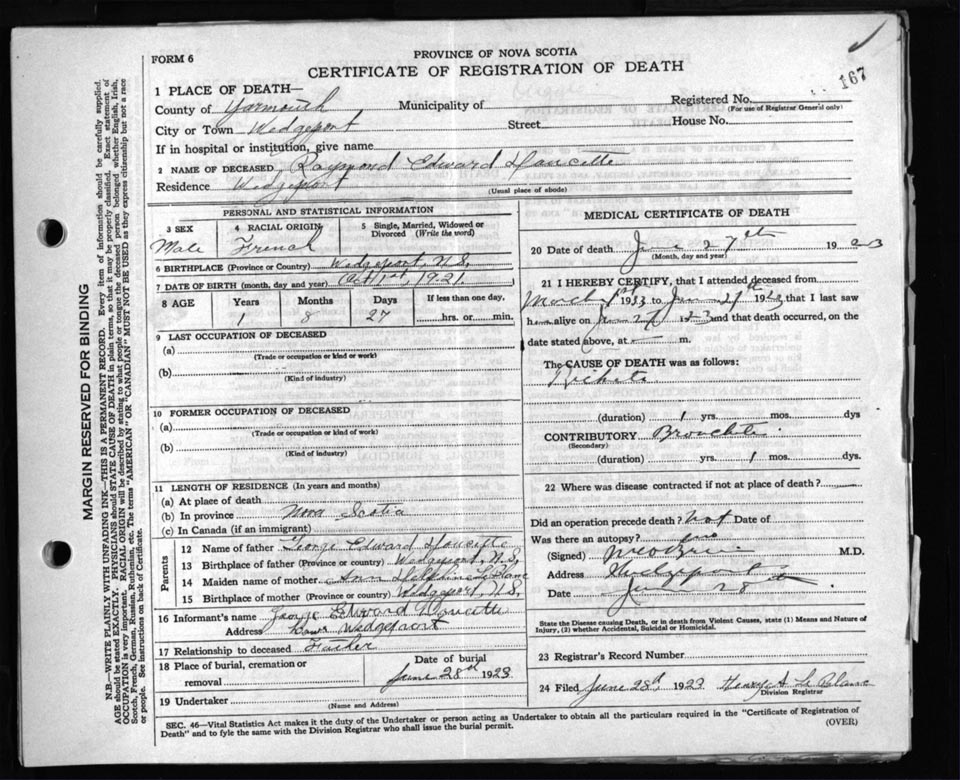 FORM 6
PROVINCE OF NOVA SCOTIA
CERTIFICATE OF REGISTRATION OF DEATH
167
1 PLACE OF DEATH—
County of Yarmouth Municipality of Argyle Registered No.
(For use of Registrar General only)
City or Town Wedgeport Street House No.
If in hospital or institution, give name
2 NAME OF DECEASED Raymond Edward Doucette
Residence Wedgeport
(Usual place of abode)
PERSONAL AND STATISTICAL INFORMATION
3 SEX 4 RACIAL ORIGIN 5 Single, Married, Widowed or Divorced (Write the word)
Male French
6 BIRTHPLACE (Province or Country) Wedgeport, N.S.
7 DATE OF BIRTH (month, day and year) Oct 1st, 1921.
8 AGE Years Months Days If less than one day,
1 8 27 hrs. or min.
9 LAST OCCUPATION OF DECEASED
(a)
(Trade or occupation or kind of work)
(b)
(Kind of industry)
10 FORMER OCCUPATION OF DECEASED
(a)
(Trade or occupation or kind of work)
(b)
(Kind of industry)
11 LENGTH OF RESIDENCE (In years and months)
(a) At place of death
(b) In province Nova Scotia
(c) In Canada (if an immigrant)
Parents
12 Name of father George Edward Doucette
13 Birthplace of father (Province or country) Wedgeport, N.S.
14 Maiden name of mother Ann Delphine LeBlanc
15 Birthplace of mother (Province or Country) Wedgeport, N.S.
16 Informant's name George Edward Doucette
Address Wedgeport
17 Relationship to deceased Father
18 Place of burial, cremation or removal
Date of burial
June 28d 1923
19 Undertaker
(Name and Address)
MEDICAL CERTIFICATE OF DEATH
20 Date of death June 27th 1923
(Month, day and year)
21 I HEREBY CERTIFY, that I attended deceased from
March 1st 1923 to June 27th 1923, that I last saw
h alive on June 27 1923 and that death occurred, on the
date stated above, at m.
The CAUSE OF DEATH was as follows:
Rickets
(duration) 1 yrs. mos. dys
CONTRIBUTORY Bronchitis
(Secondary)
(duration) yrs. 1 mos. dys.
22 Where was disease contracted if not at place of death?
Did an operation precede death? not Date of
Was there an autopsy? no
(Signed) M.D.
Address Wedgeport
Date June 28
State the Disease causing Death, or in death from Violent Causes, state (1) Means and Nature of
Injury, (2) whether Accidental, Suicidal or Homicidal.
23 Registrar's Record Number
24 Filed June 28d, 1923 Le Blanc
Division Registrar
SEC. 46—Vital Statistics Act makes it the duty of the Undertaker or person acting as Undertaker to obtain all the particulars required in the "Certificate of Registration of
Death" and to fyle the same with the Division Registrar who shall issue the burial permit.
(OVER)
MARGIN RESERVED FOR BINDING
N.B.—WRITE PLAINLY WITH UNFADING INK—THIS IS A PERMANENT RECORD. Every item of information should be carefully supplied.
AGE should be stated EXACTLY. PHYSICIANS should STATE CAUSE OF DEATH in plain terms, so that it may be properly classified. Exact statement of
OCCUPATION is very important. RACIAL ORIGIN will be described by stating to what people or tongue the deceased person belonged whether English, Irish,
Scotch, French, German, Russian, Ruthenian, etc. The terms "AMERICAN" OR "CANADIAN" MUST NOT BE USED as they express citizenship but not a race
or people. See instructions on back of Certificate.